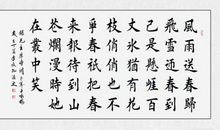 風雨送春歸
飛雪迎春到
已是懸崖百
丈冰猶有花
枝俏俏也不
爭春祇把春
來報待到山
花爛漫時她
在叢中笑